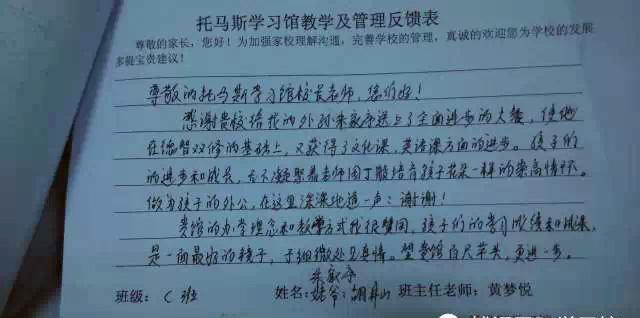 托马斯学习馆教学及管理反馈表
尊敬的家长，您好！为加强家校理解沟通，完善学校的管理，真诚的欢迎您为学校的发展
多提宝贵建议！
尊敬的托马斯学习馆校长老师，您们好！
感谢贵校给我的外孙朱家序送上了全面进步的大餐，使他
在德智双修的基础上，又获得了文化课、英语课方面的进步。孩子们
的进步和成长，无不凝聚着老师园丁般培育孩子花朵一样的崇高情怀。
做为孩子的外公，在这里深深地道一声：谢谢！
贵馆的办学理念和教学方式我很赞同，孩子们的学习成绩和成果，
是一面最好的镜子，于细微处见真情。望贵馆百尺竿头，更进一步。
班级：C 班 姓名： 班主任老师：黄梦悦